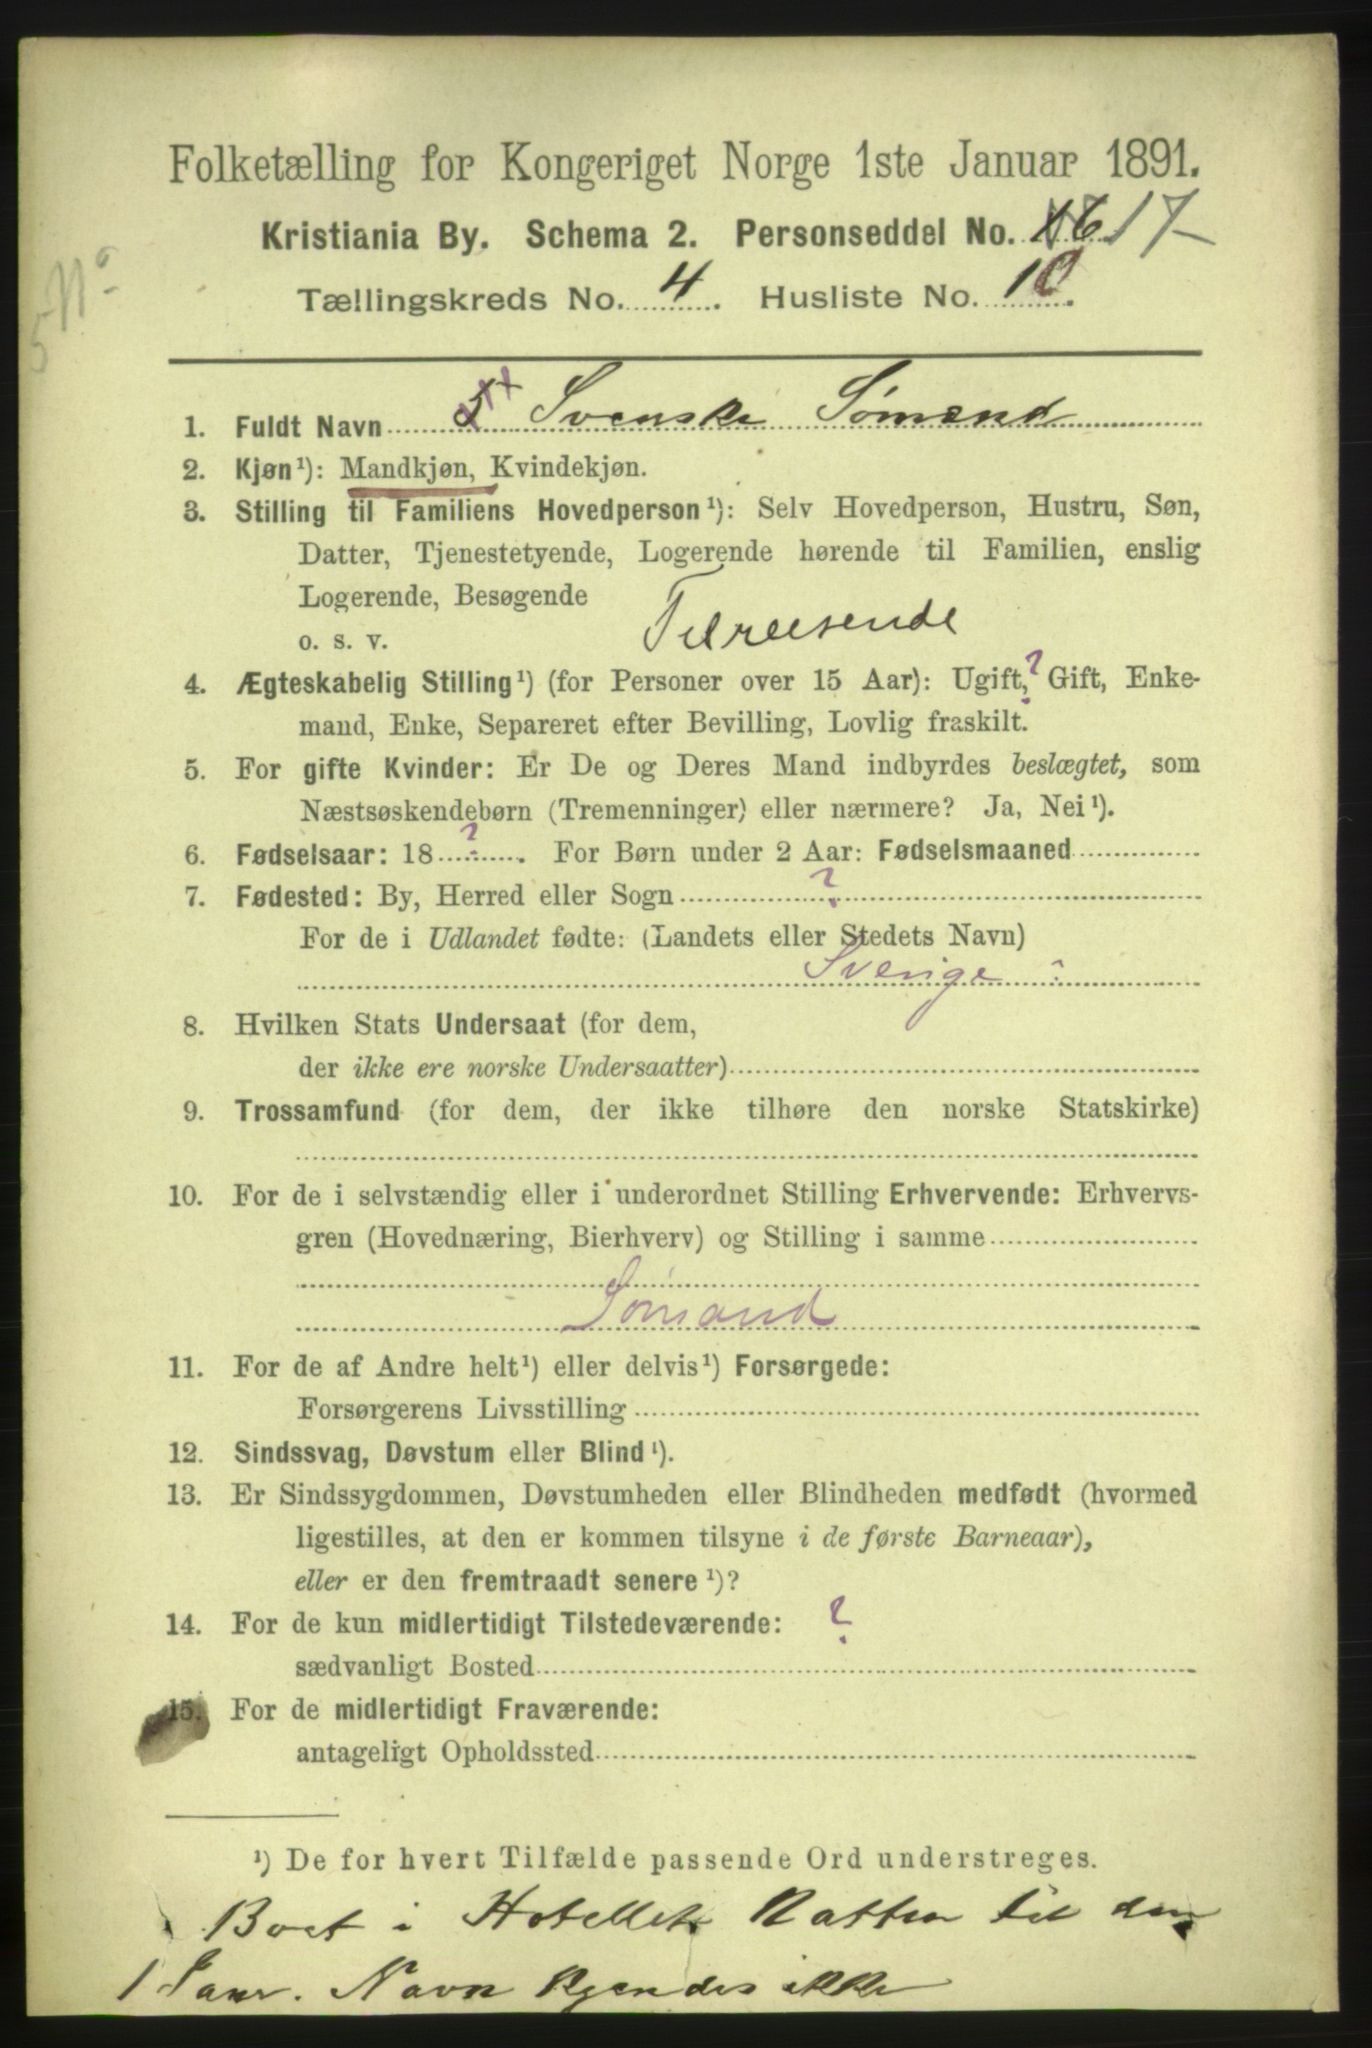 Folketælling for Kongeriget Norge 1ste Januar 1891.
Kristiania By. Schema 2. Personseddel No. 16 17
No
5
Tællingskreds No. 4. Husliste No. 10.
1. Fuldt Navn 5 Svenske Sømænd
2. Kjøn¹): Mandkjøn, Kvindekjøn.
3. Stilling til Familiens Hovedperson¹): Selv Hovedperson, Hustru, Søn,
Datter, Tjenestetyende, Logerende hørende til Familien, enslig
Logerende, Besøgende
o. s. v. Tilreisende
4. Ægteskabelig Stilling¹) (for Personer over 15 Aar): Ugift, ? Gift, Enke-
mand, Enke, Separeret efter Bevilling, Lovlig fraskilt.
5. For gifte Kvinder: Er De og Deres Mand indbyrdes beslægtet, som
Næstsøskendebørn (Tremenninger) eller nærmere? Ja, Nei¹).
6. Fødselsaar: 18 ? . For Børn under 2 Aar: Fødselsmaaned
7. Fødested: By, Herred eller Sogn ?
For de i Udlandet fødte: (Landets eller Stedets Navn)
Sverige ?
8. Hvilken Stats Undersaat (for dem,
der ikke ere norske Undersaatter)
9. Trossamfund (for dem, der ikke tilhøre den norske Statskirke)
10. For de i selvstændig eller i underordnet Stilling Erhvervende: Erhvervs-
gren (Hovednæring, Bierhverv) og Stilling i samme
Sømand
11. For de af Andre helt¹) eller delvis¹) Forsørgede:
Forsørgerens Livsstilling
12. Sindssvag, Døvstum eller Blind¹).
13. Er Sindssygdommen, Døvstumheden eller Blindheden medfødt (hvormed
ligestilles, at den er kommen tilsyne i de første Barneaar),
eller er den fremtraadt senere¹)?
14. For de kun midlertidigt Tilstedeværende: ?
sædvanligt Bosted
15. For de midlertidigt Fraværende:
antageligt Opholdssted
¹) De for hvert Tilfælde passende Ord understreges.
Boet i Hotellet Natten til den
1 Janr. Navn kjendes ikke